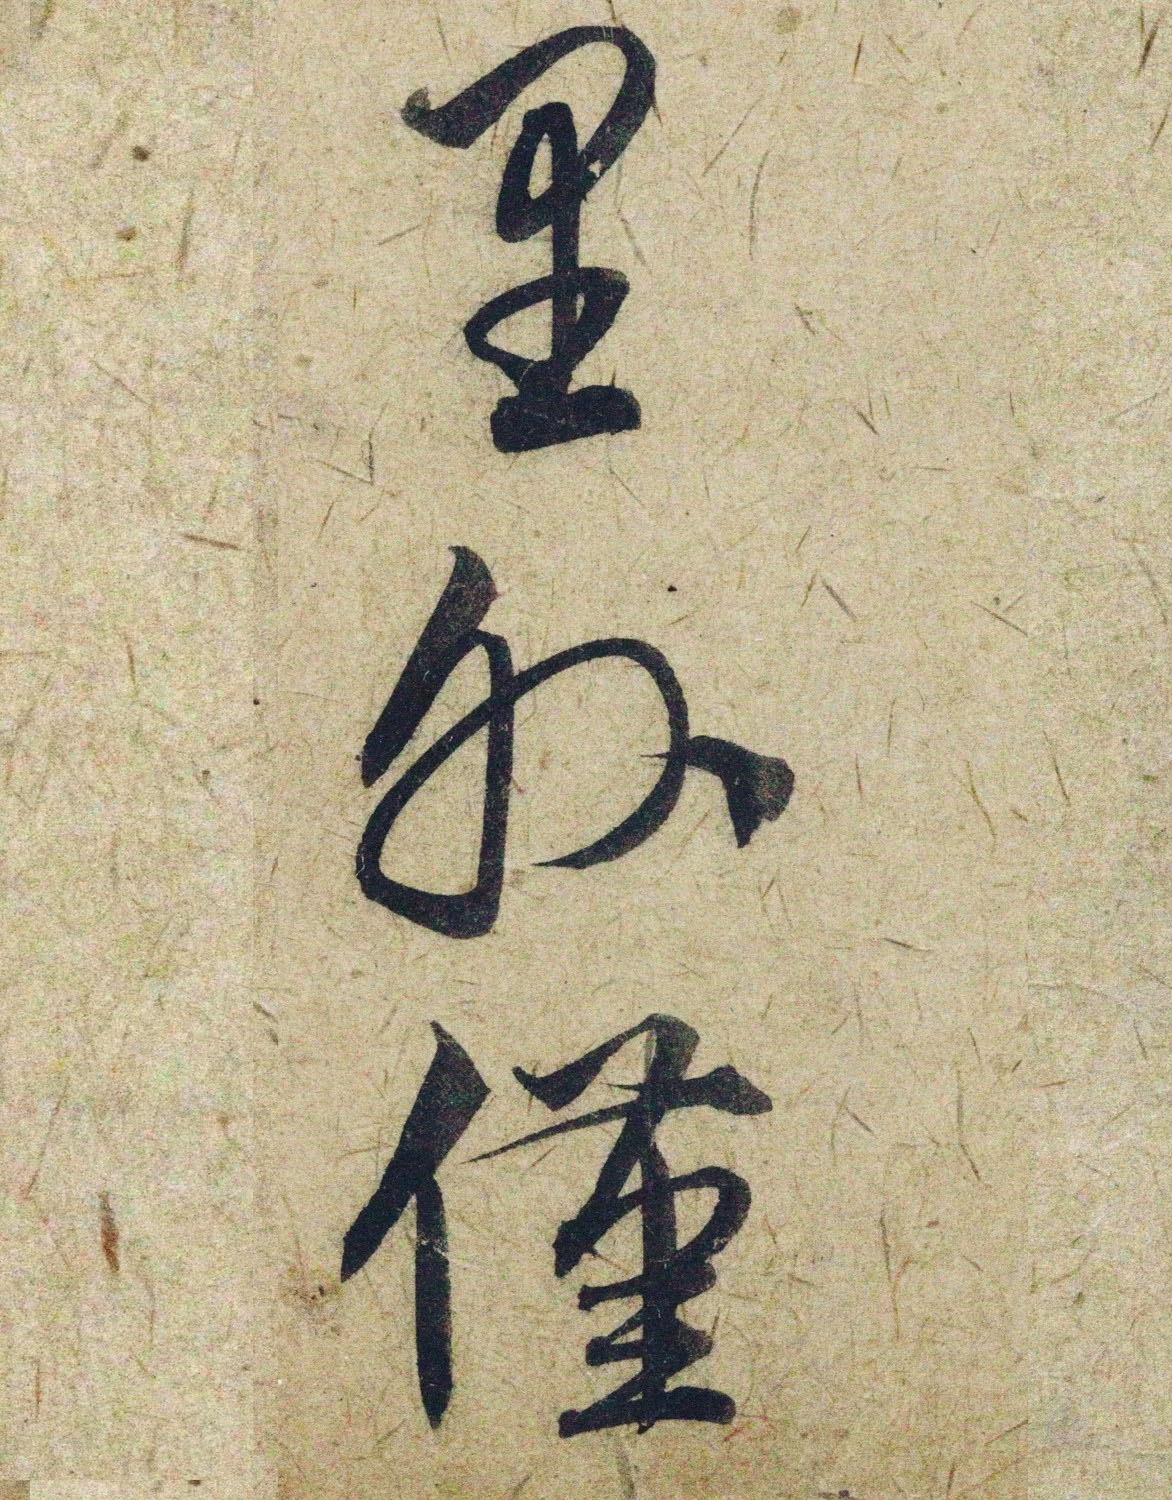 里外僅